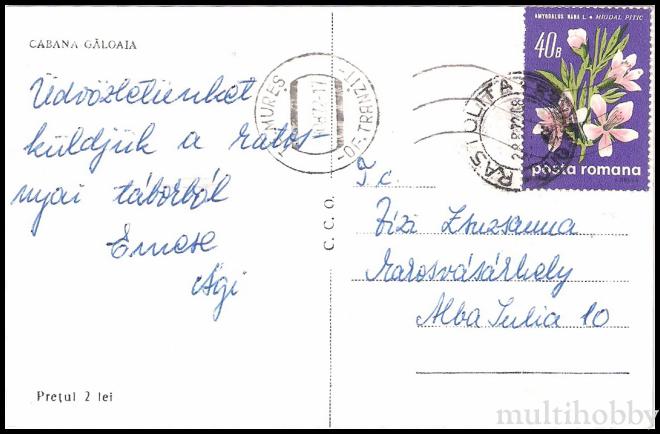 CABANA GĂLOAIA
Üdvözletünket
küldjük a ratos-
nyai táborból
Emese
Ági
Prețul 2 lei
C. C. O.
MUREȘ
TRANZIT
RASTOLITA
AMYGDALUS NANA L. - MIGDAL PITIC
40B
posta romana
T. c.
Zsuzsanna
Marosvásárhely
Alba Iulia 10
multihobby